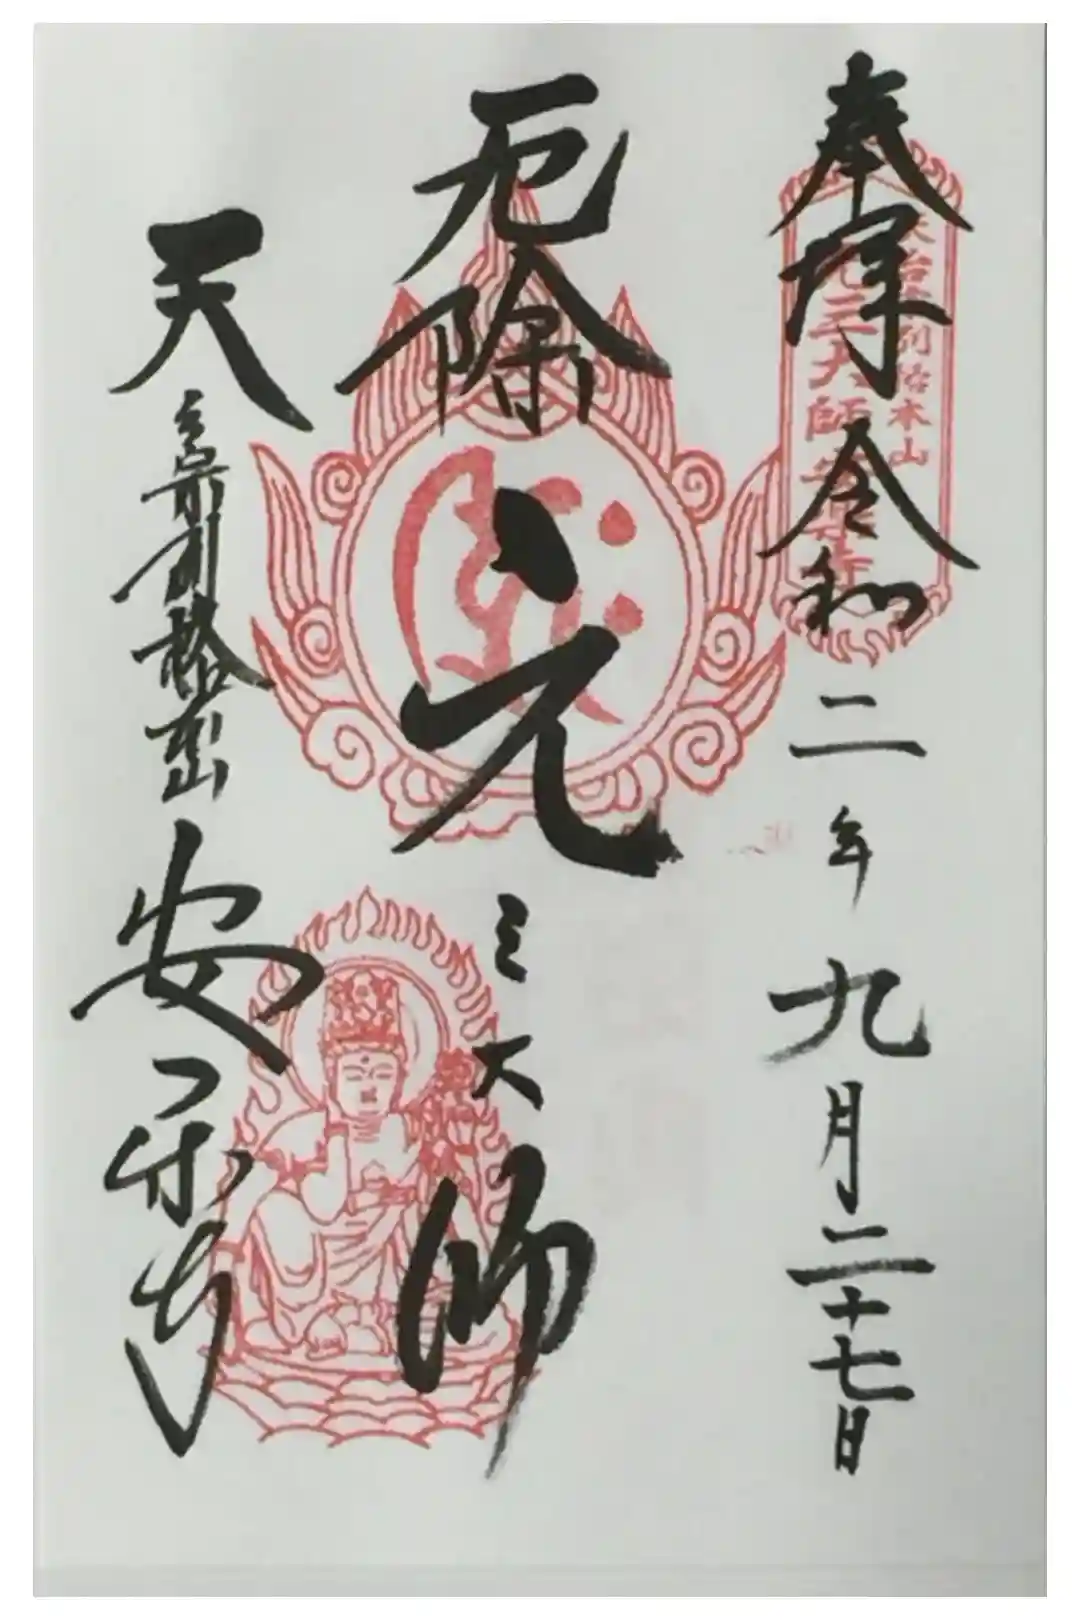 奉拝 令和二年九月二十七日
天台宗別格本山
元三大師 安楽寺
厄除 元三大師
天台宗別格本山 安楽寺